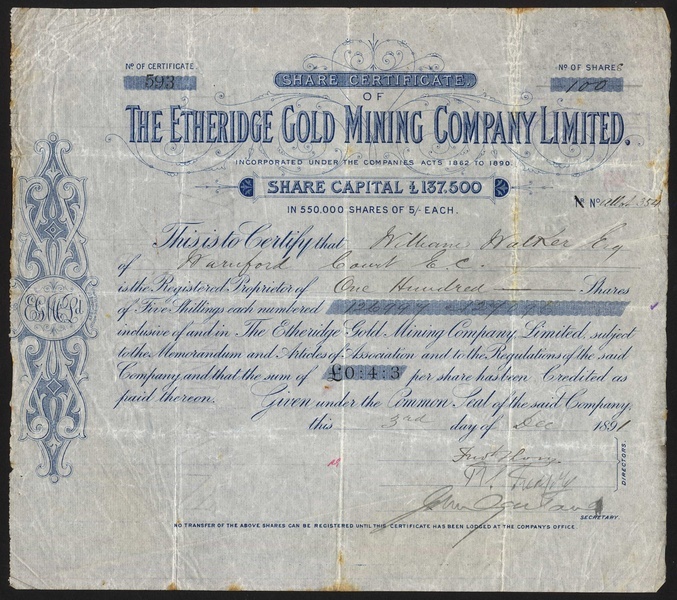 Nº OF CERTIFICATE
593
Nº OF SHARES
100
SHARE CERTIFICATE
OF
THE ETHERIDGE GOLD MINING COMPANY LIMITED.
INCORPORATED UNDER THE COMPANIES ACTS 1862 TO 1890.
SHARE CAPITAL £137.500
IN 550,000 SHARES OF 5/- EACH.
Nº
This is to Certify that William Walker Esq
of Warnford Court E.C.
is the Registered Proprietor of One Hundred Shares
of Five Shillings each numbered
inclusive of and in The Etheridge Gold Mining Company, Limited, subject
to the Memorandum and Articles of Association and to the Regulations of the said
Company, and that the sum of £0:4:3 per share has been Credited as
paid thereon. Given under the Common Seal of the said Company,
this 3rd day of Dec 1891
DIRECTORS.
SECRETARY.
NO TRANSFER OF THE ABOVE SHARES CAN BE REGISTERED UNTIL THIS CERTIFICATE HAS BEEN LODGED AT THE COMPANY'S OFFICE.